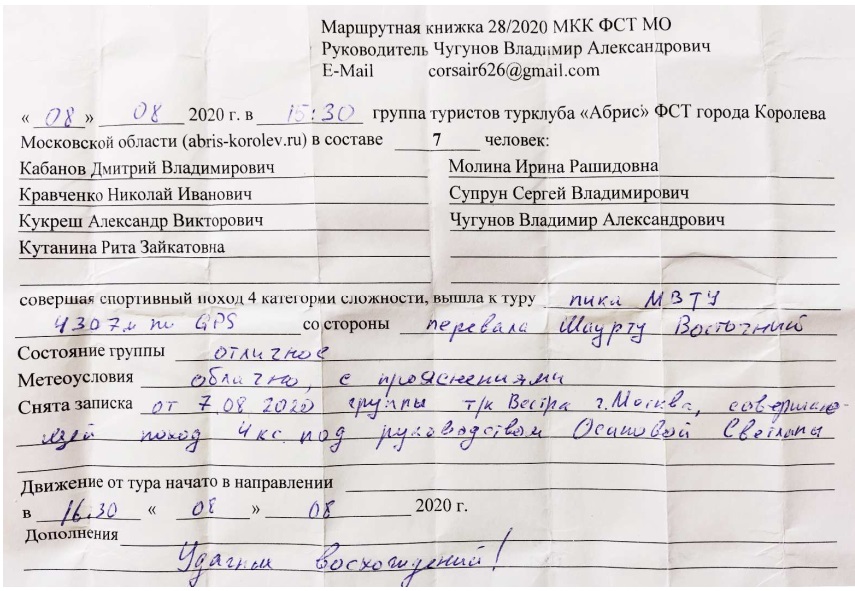 Маршрутная книжка 28/2020 МКК ФСТ МО
Руководитель Чугунов Владимир Александрович
E-Mail corsair626@gmail.com
« 08 » 08 2020 г. в 15:30 группа туристов турклуба «Абрис» ФСТ города Королева
Московской области (abris-korolev.ru) в составе 7 человек:
Кабанов Дмитрий Владимирович Молина Ирина Рашидовна
Кравченко Николай Иванович Супрун Сергей Владимирович
Кукреш Александр Викторович Чугунов Владимир Александрович
Кутанина Рита Зайкатовна
совершая спортивный поход 4 категории сложности, вышла к туру пика МВТУ
4307м по GPS со стороны перевала Шаурту Восточний
Состояние группы отличное
Метеоусловия облачно, с прояснениями
Снята записка от 7.08.2020 группы т/к Вестра г.Москва, совершаю-
щей поход 4кс. под руководством Осиповой Светланы
Движение от тура начато в направлении
в 16.30 « 08 » 08 2020 г.
Дополнения
Удачных восхождений!